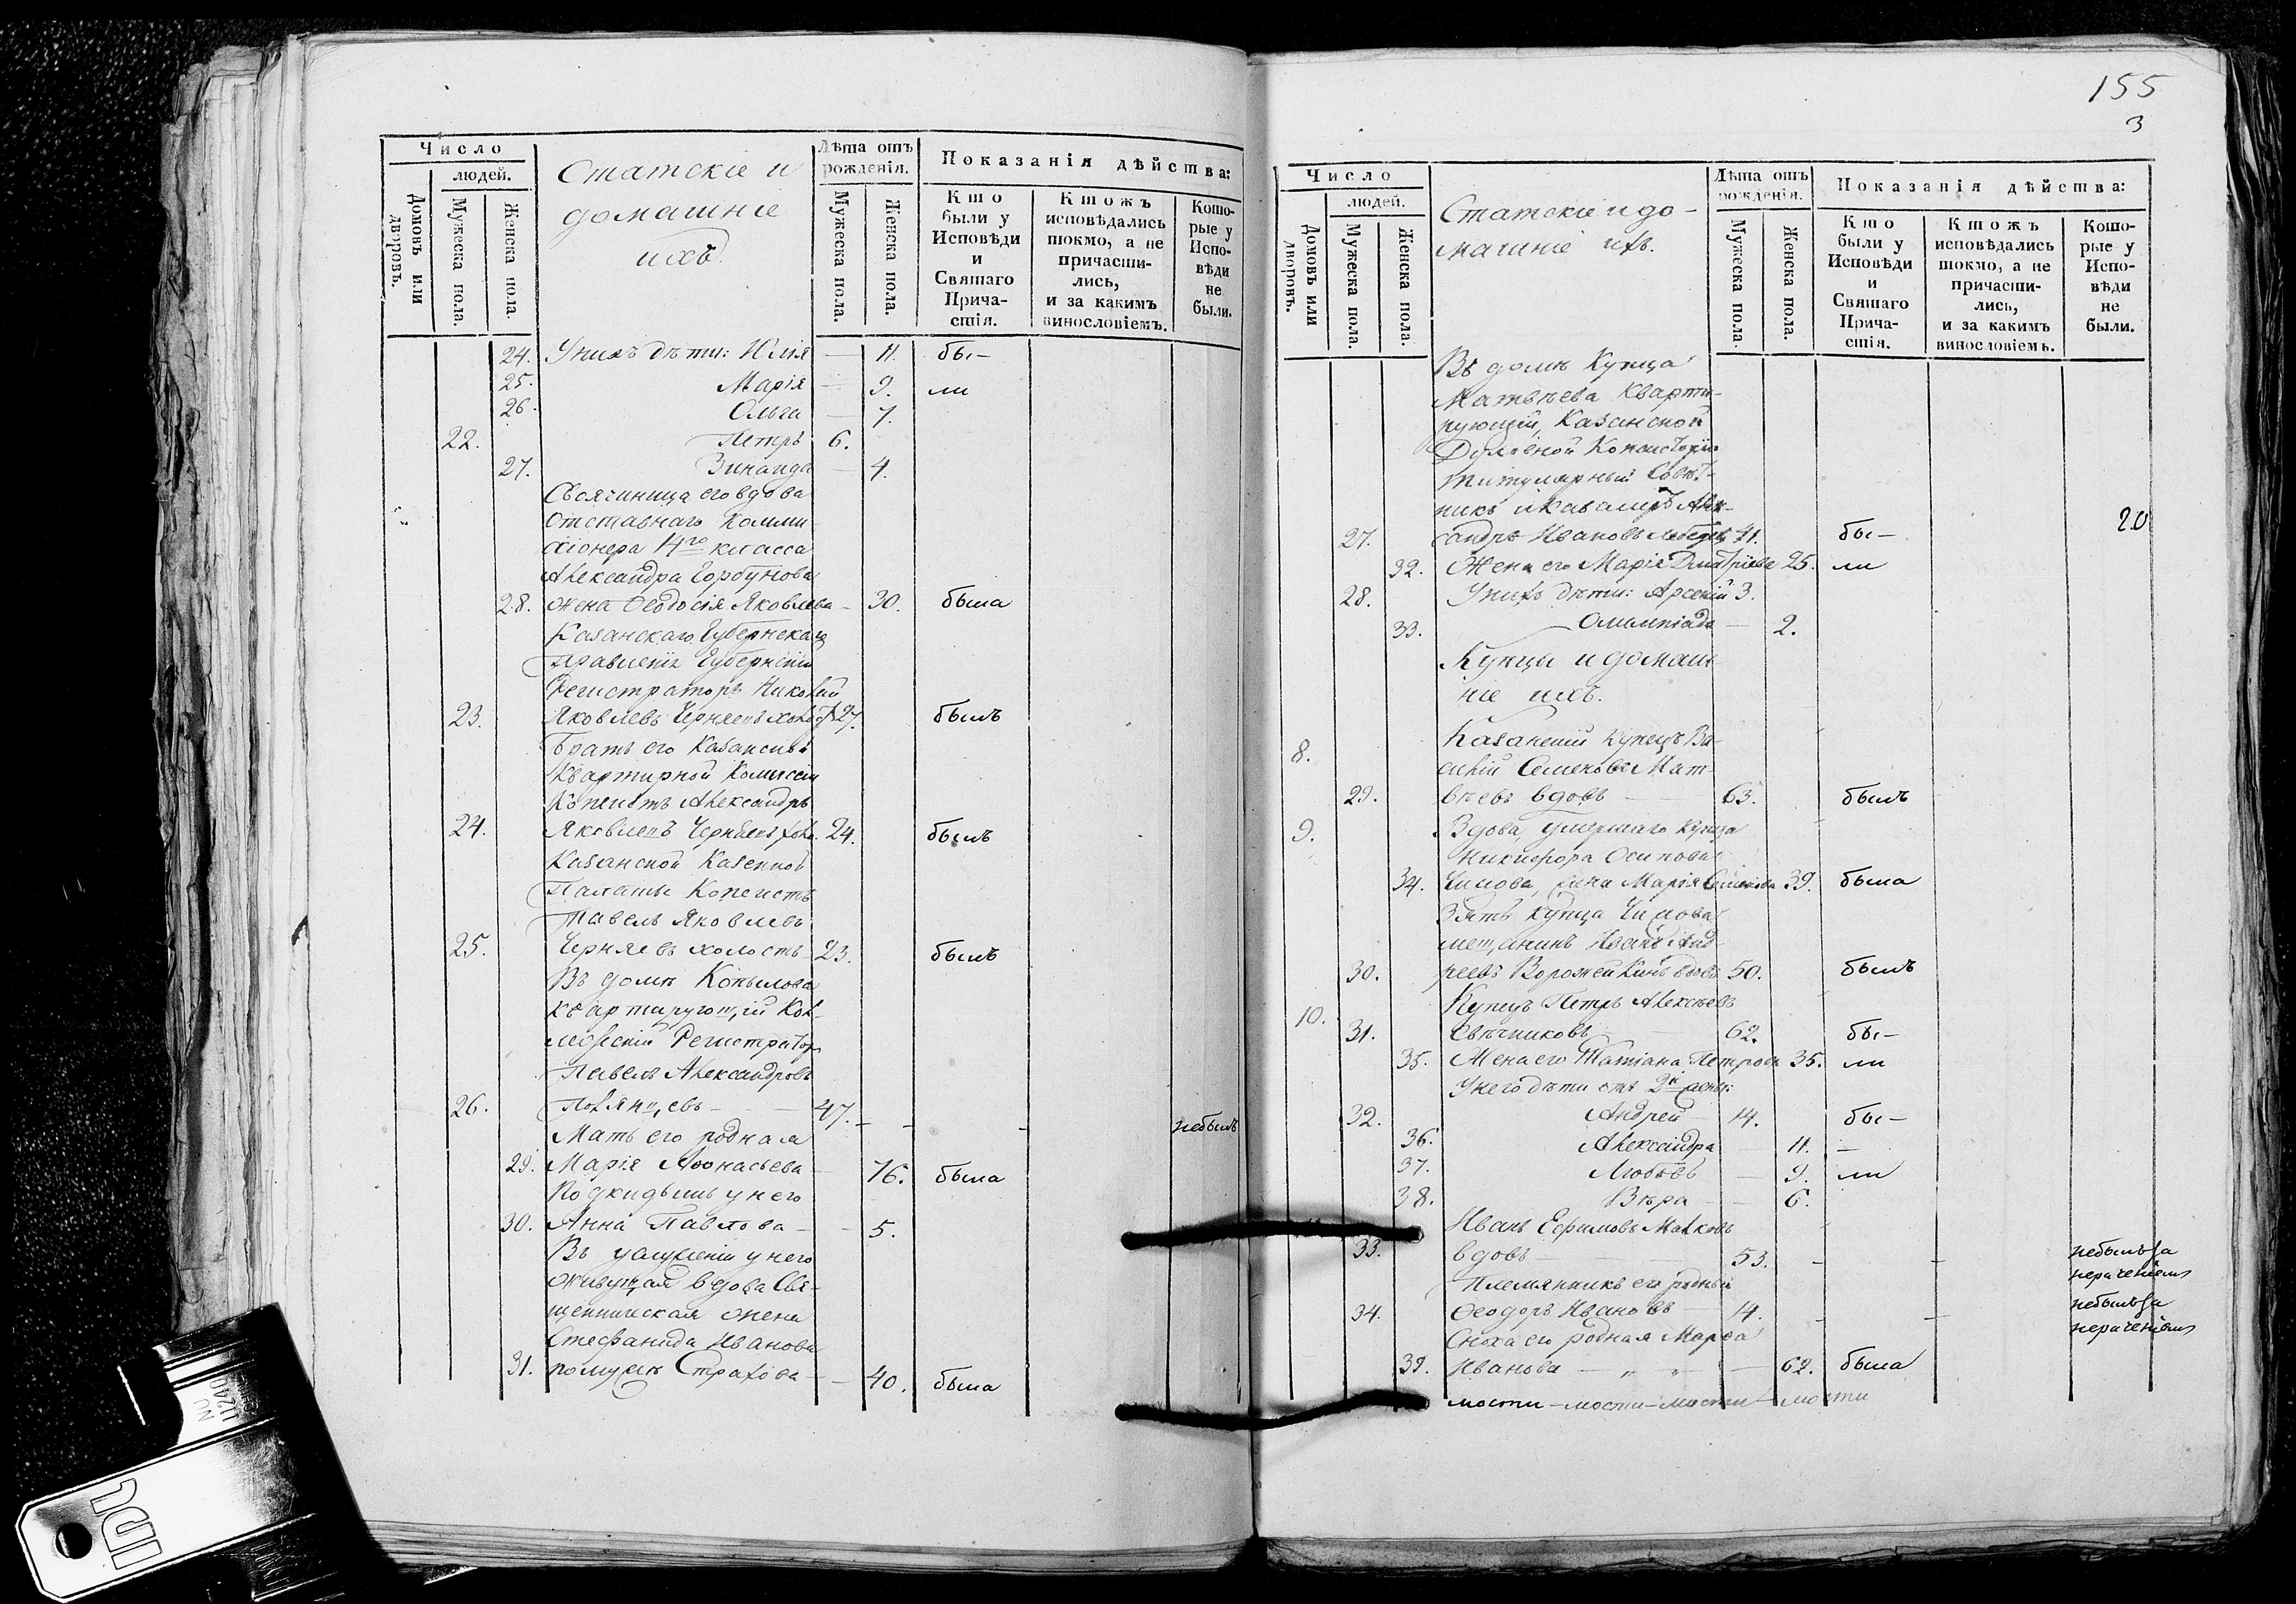 Число
людей.
Домовъ или дворовъ.
Мужеска пола.
Женска пола.
Статскіе и
домашніе
ихъ.
Лѣта отъ
рожденія.
Мужеска пола.
Женска пола.
Показанія дѣйства:
Кто
были у
Исповѣди
и
Святаго
Прича-
стія.
Ктожъ
исповѣдались
токмо, а не
причасти-
лись,
и за какимъ
винословіемъ.
Кото-
рые у
Испо-
вѣди
не
были.
24. Унихъ дѣти: Юлія — 11. бы-
25. Марія — 9. ли
26. Ольга — 7.
22. Петръ 6.
27. Зинаида — 4.
Своячиница его вдова
Отставнаго Комми-
сіонера 14го класса
Александра Горбунова
28. жена Ѳеодосія Яковлева — 30. была
Казанскаго Губернскаго
Правленія Губернскій
Регистраторъ Николай
23. Яковлевъ Черняевъ холостъ 27. былъ
Братъ его Казанской
Квартирной Комиссіи
Копеистъ Александръ
24. Яковлевъ Черняевъ холо. 24. былъ
Казанской Казенной
Палаты Копеистъ
Павелъ Яковлевъ
25. Черняевъ холостъ 23. былъ
Въ домѣ Копылова
квартирующій Кол-
лежскій Регистраторъ
Павелъ Александровъ
26. — 47. — — — небылъ
Мать его родная
29. Марія Аѳонасьева — 76. была
Подкидышъ у него
30. Анна Павлова — — 5.
Въ услуженіи у него
живущая вдова Свя-
щенническая жена
Стефанида Иванова
31. по мужѣ Страхова — — 40. была
155
3
Число
людей.
Домовъ или дворовъ.
Мужеска пола.
Женска пола.
Статскіе и до-
машніе ихъ.
Лѣта отъ
рожденія.
Мужеска пола.
Женска пола.
Показанія дѣйства:
Кто
были у
Исповѣди
и
Святаго
Прича-
стія.
Ктожъ
исповѣдались
токмо, а не
причасти-
лись,
и за какимъ
винословіемъ.
Кото-
рые у
Испо-
вѣди
не
были.
Въ домѣ Купца
Матвѣева кварти-
рующій, Казанской
Духовной Консисторіи
Титулярный Совѣт-
никъ и Кавалиръ Алек-
27. сандръ Ивановъ Лебедевъ 41. бы- 20
32. Жена его Марія Димитріева 25. ли
28. Унихъ дѣти: Арсеній 3.
33. Олимпіада — 2.
Купцы и домаш-
ніе ихъ.
8. Казанскій купецъ Ва-
силій Семеновъ Мат-
29. вѣевъ вдовъ — 63. былъ
9. Вдова, умершаго купца
Никифора Осипова
34. Чилова, жена Марія Семенова 39. была
Зять купца Чилова
мещанинъ Иванъ Анд-
30. реевъ Ворожейкинъ вдовъ 50. былъ
10. Купецъ Петръ Алексѣевъ
31. Свѣчниковъ — 62. бы-
35. Жена его Татіана Петрова 35. ли
У него дѣти отъ 2й жены:
32. Андрей 14. бы-
36. Александра — 11. —
37. Любовь — 9. ли
38. Вѣра — 6.
Иванъ Ефимовъ Малковъ
33. вдовъ — 53. — — небылъ за
нераченіемъ
Племянникъ его родный
34. Ѳеодоръ Ивановъ — 14. — — небылъ за
нераченіемъ
Сноха его родная Марѳа
39. Иванова — „ „ — 62. была
мости — мости — мости — мости